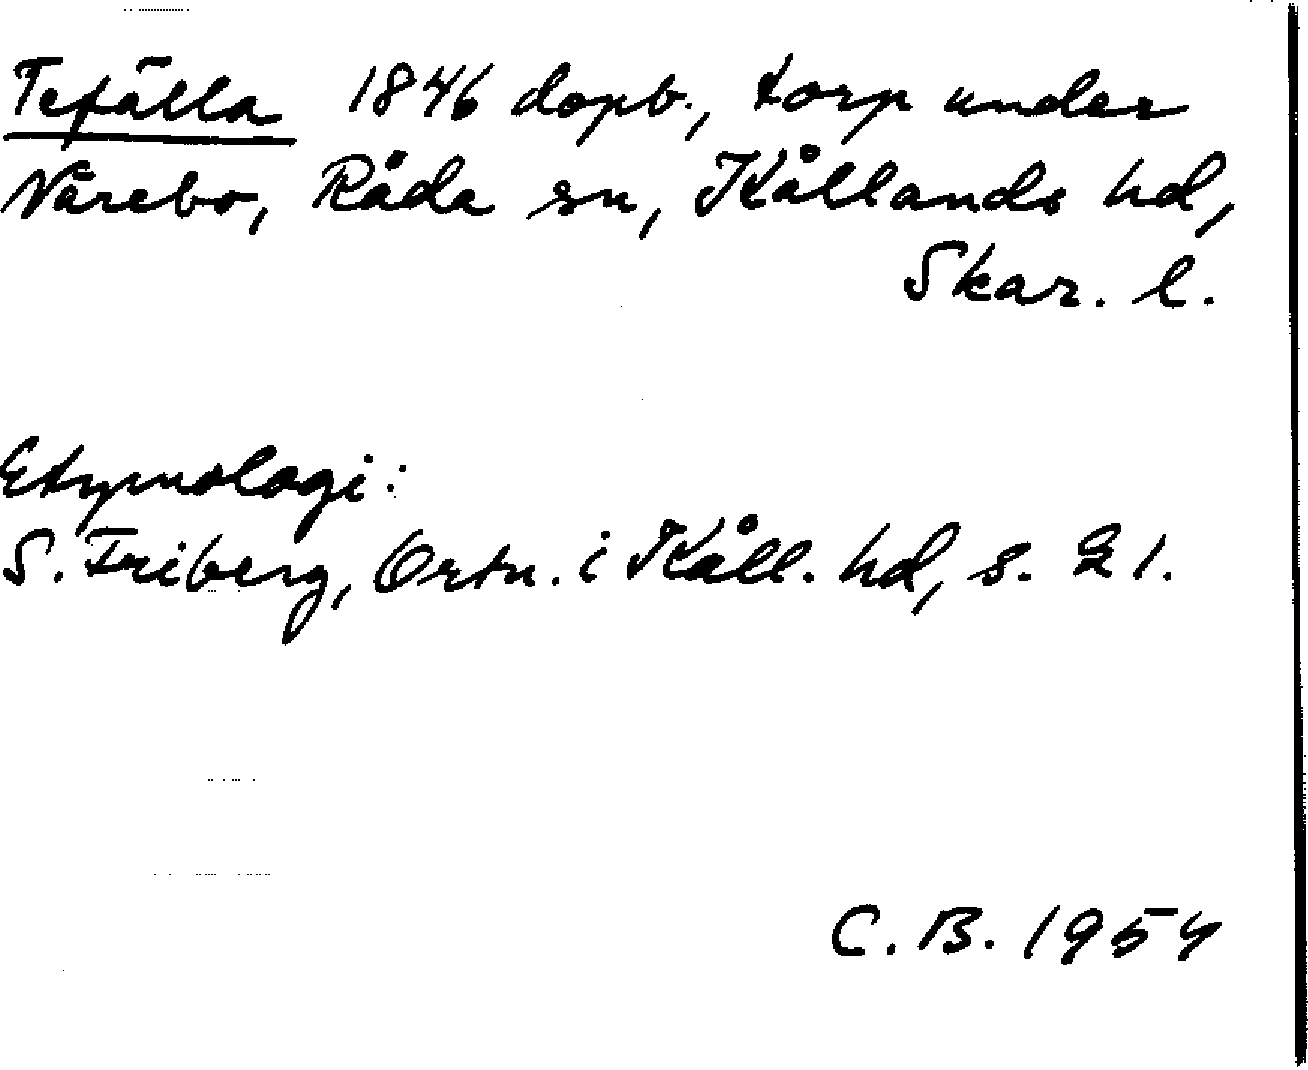 Tefälla 1846 dopb., torp under
Nårebo, Råda sn, Kållands hd,
Skar. l.
Etymologi:
S. Friberg, Ortn. i Kåll. hd, s. 21.
C. B. 1954